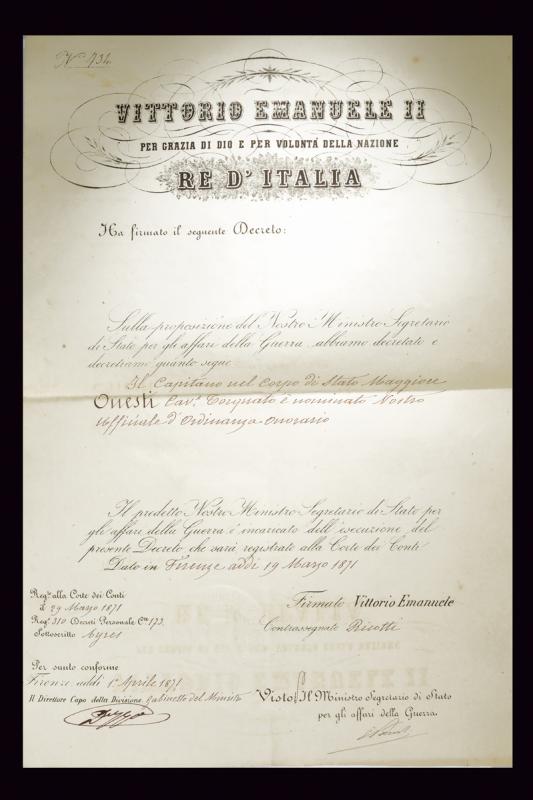 N.º 734
VITTORIO EMANUELE II
PER GRAZIA DI DIO E PER VOLONTÀ DELLA NAZIONE
RE D'ITALIA
Ha firmato il seguente Decreto:
Sulla proposizione del Nostro Ministro Segretario
di Stato per gli affari della Guerra abbiamo decretato e
decretiamo quanto segue
Il Capitano nel Corpo di Stato Maggiore
Onesti Cav.e Torquato è nominato Nostro
Uffiziale d'Ordinanza Onorario
Il predetto Nostro Ministro Segretario di Stato per
gli affari della Guerra è incaricato dell'esecuzione del
presente Decreto che sarà registrato alla Corte dei Conti
Dato in Firenze addì 19 Marzo 1871
Firmato Vittorio Emanuele
Contrassegnato Ricotti
Reg.to alla Corte dei Conti
il 29 Marzo 1871
Reg.o 310 Decreti Personale C.te 173
Sottoscritto Ayres
Per sunto conforme
Firenze addì 1º Aprile 1871
Il Direttore Capo della Divisione Gabinetto del Ministro
Visto Il Ministro Segretario di Stato
per gli affari della Guerra.